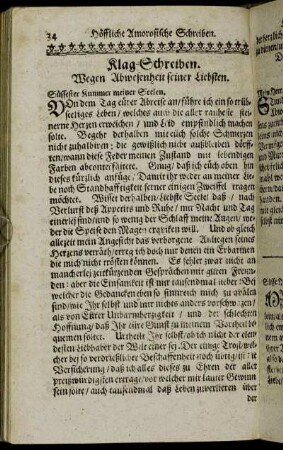 34 Höffliche Amorosische Schreiben.
Klag-Schreiben.
Wegen Abwesenheit seiner Liebsten.
Süssester Kummer meiner Seelen.
VOn dem Tag eürer Abreise an/führe ich ein so trüb-
seeliges Leben/ welches auch die aller rauheste stei-
nerne Herzen erweichen / und sich empfindlich machen
solte. Begehr derhalben mit eüch solche Schmerzen
nicht zuhalbieren, die gewißlich nicht außbleiben dörff-
ten/wann diese Feder meinen Zustand mit lebendigen
Farben abconterfaiete. Gnug/daß ich eüch eben hin
dieses fürzlich anfüge/ Damit ihr weder an meiner Lie-
be noch Standhafftigkeit ferner einigen Zweiffel tragen
möchtet. Wisset derhalben/ liebste Seele/ daß / nach
Verlurst deß Appetits und Ruhe/ mir Nacht und Tag
einerlei seine/und so wenig der Schlaff meine Augen/ we-
der die Speiß den Magen erquiken will. Und ob gleich
allezeit mein Angesicht das verborgene Anligen seines
Herzens verräth/ erreg ich doch nur bei denen ein Erbarmen
die mich nicht trösten können. Es fehlet zwar nicht an
mancherlei zeitkürzenden Gesprächen mit guten Freun-
den: aber die Einsamkeit ist mir tausendmal lieber/ Bei
welcher die Gedancken eben so sinnreich mich zu quälen
sind/ wie Ihr selbst und mir nichts anders vorschwezen/
als von Eürer Unbarmherzigkeit / und der schlechten
Hoffnung/ daß Ihr eüre Gunst zu meinem Vortheil be-
quemen soltet. Urtheilt Ihr selbst/ ob ich nicht der elen-
deste Liebhaber der Welt einer sei. Der einige Trost/ wel-
cher bei so verdrießlicher Beschaffenheit noch übrig ist: ie
Versicherung/ daß ich alles dieses zu Ehren der aller
preiswürdigsten ertrage/ vor welcher mit lauter Gewinn
sein solte/ auch tausendmal daß Leben zuverlieren über
der